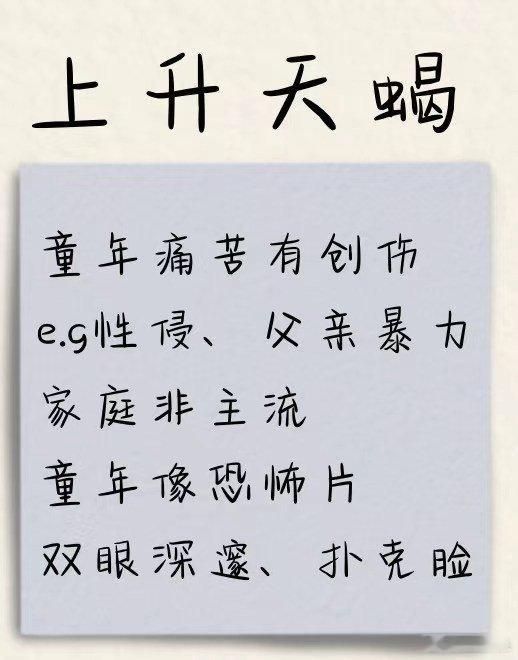 上升天蝎
童年痛苦有创伤
e.g性侵、父亲暴力
家庭非主流
童年像恐怖片
双眼深邃、扑克脸